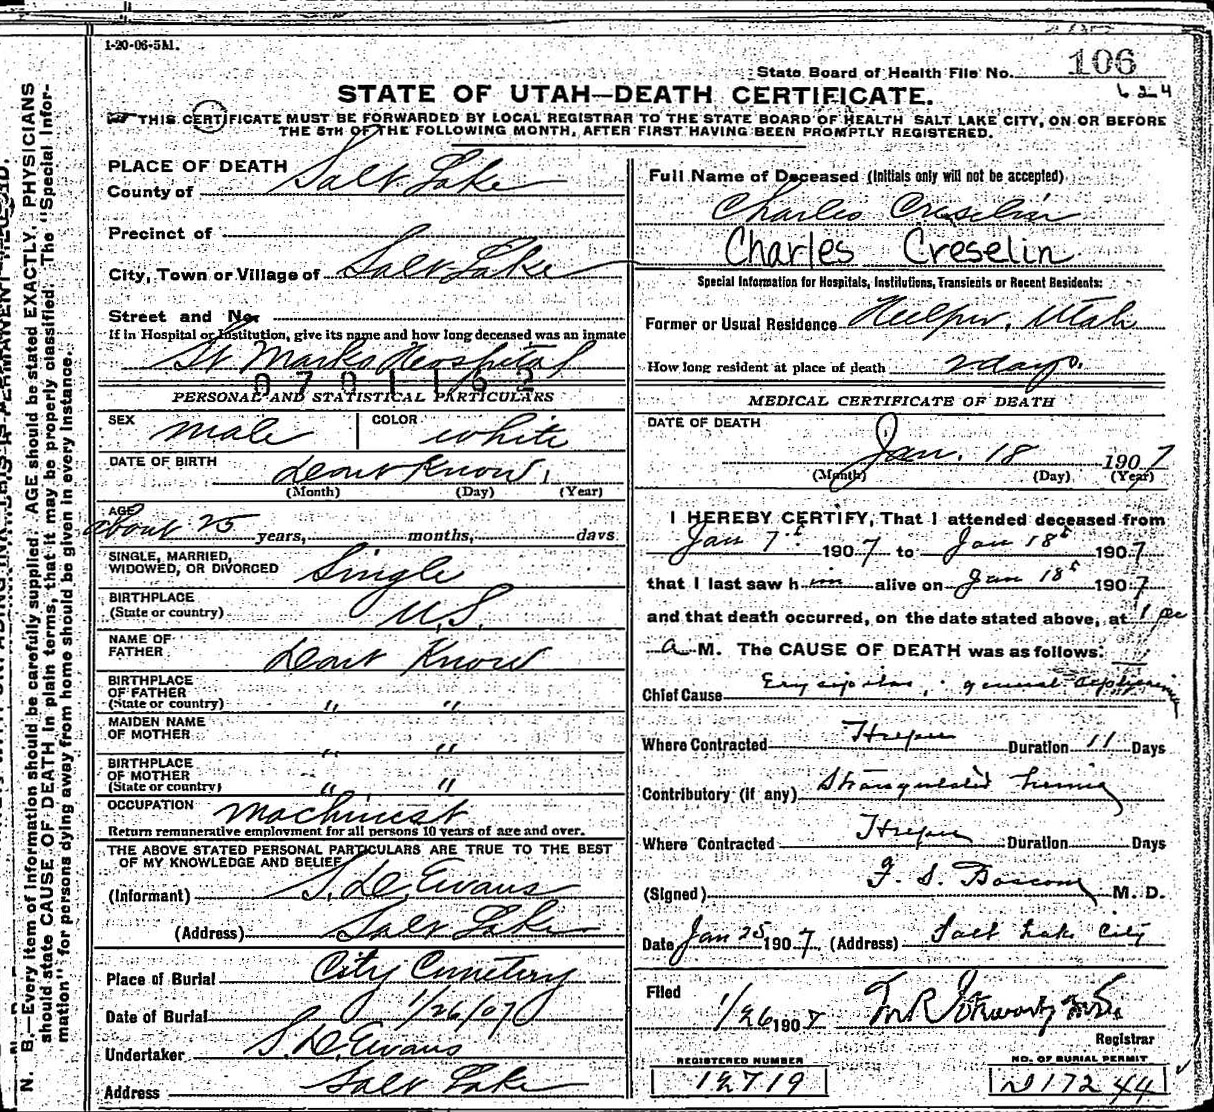 1-20-06-5M.
State Board of Health File No. 106
624
STATE OF UTAH—DEATH CERTIFICATE.
THIS CERTIFICATE MUST BE FORWARDED BY LOCAL REGISTRAR TO THE STATE BOARD OF HEALTH SALT LAKE CITY, ON OR BEFORE
THE 5TH OF THE FOLLOWING MONTH, AFTER FIRST HAVING BEEN PROMPTLY REGISTERED.
PLACE OF DEATH
County of Salt Lake
Precinct of
City, Town or Village of Salt Lake
Street and No.
If in Hospital or Institution, give its name and how long deceased was an inmate
St Marks Hospital
0701162
PERSONAL AND STATISTICAL PARTICULARS
SEX male COLOR white
DATE OF BIRTH dont Know.
(Month) (Day) (Year)
AGE about 25 years, months, days
SINGLE, MARRIED,
WIDOWED, OR DIVORCED Single
BIRTHPLACE
(State or country) U.S.
NAME OF
FATHER dont Know
BIRTHPLACE
OF FATHER
(State or country) " "
MAIDEN NAME
OF MOTHER " "
BIRTHPLACE
OF MOTHER
(State or country) " "
OCCUPATION machinest
Return remunerative employment for all persons 10 years of age and over.
THE ABOVE STATED PERSONAL PARTICULARS ARE TRUE TO THE BEST
OF MY KNOWLEDGE AND BELIEF
(Informant) S. D. Evans
(Address) Salt Lake
Place of Burial City Cemetery
Date of Burial 1/26/07
Undertaker S. D. Evans
Address Salt Lake
Full Name of Deceased (Initials only will not be accepted)
Charles Creselin
Charles Creselin
Special Information for Hospitals, Institutions, Transients or Recent Residents:
Former or Usual Residence Helper, Utah
How long resident at place of death 2 days.
MEDICAL CERTIFICATE OF DEATH
DATE OF DEATH
Jan. 18 1907
(Month) (Day) (Year)
I HEREBY CERTIFY, That I attended deceased from
Jan 7 1907 to Jan 18 1907
that I last saw him alive on Jan 18 1907
and that death occurred, on the date stated above, at 1
a M. The CAUSE OF DEATH was as follows:
Chief Cause Erysipelas, general
Where Contracted Helper Duration 11 Days
Contributory (if any) Strangulated hernia
Where Contracted Helper Duration Days
(Signed) F. S. Bascom M. D.
Date Jan 25 1907 (Address) Salt Lake City
Filed 1/26 1907
Registrar
REGISTERED NUMBER
12719
NO. OF BURIAL PERMIT
17244
N. B.—Every item of information should be carefully supplied. AGE should be stated EXACTLY. PHYSICIANS
should state CAUSE OF DEATH in plain terms, that it may be properly classified. The "Special Infor-
mation" for persons dying away from home should be given in every instance.